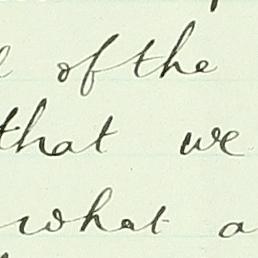 of the
that we
what a